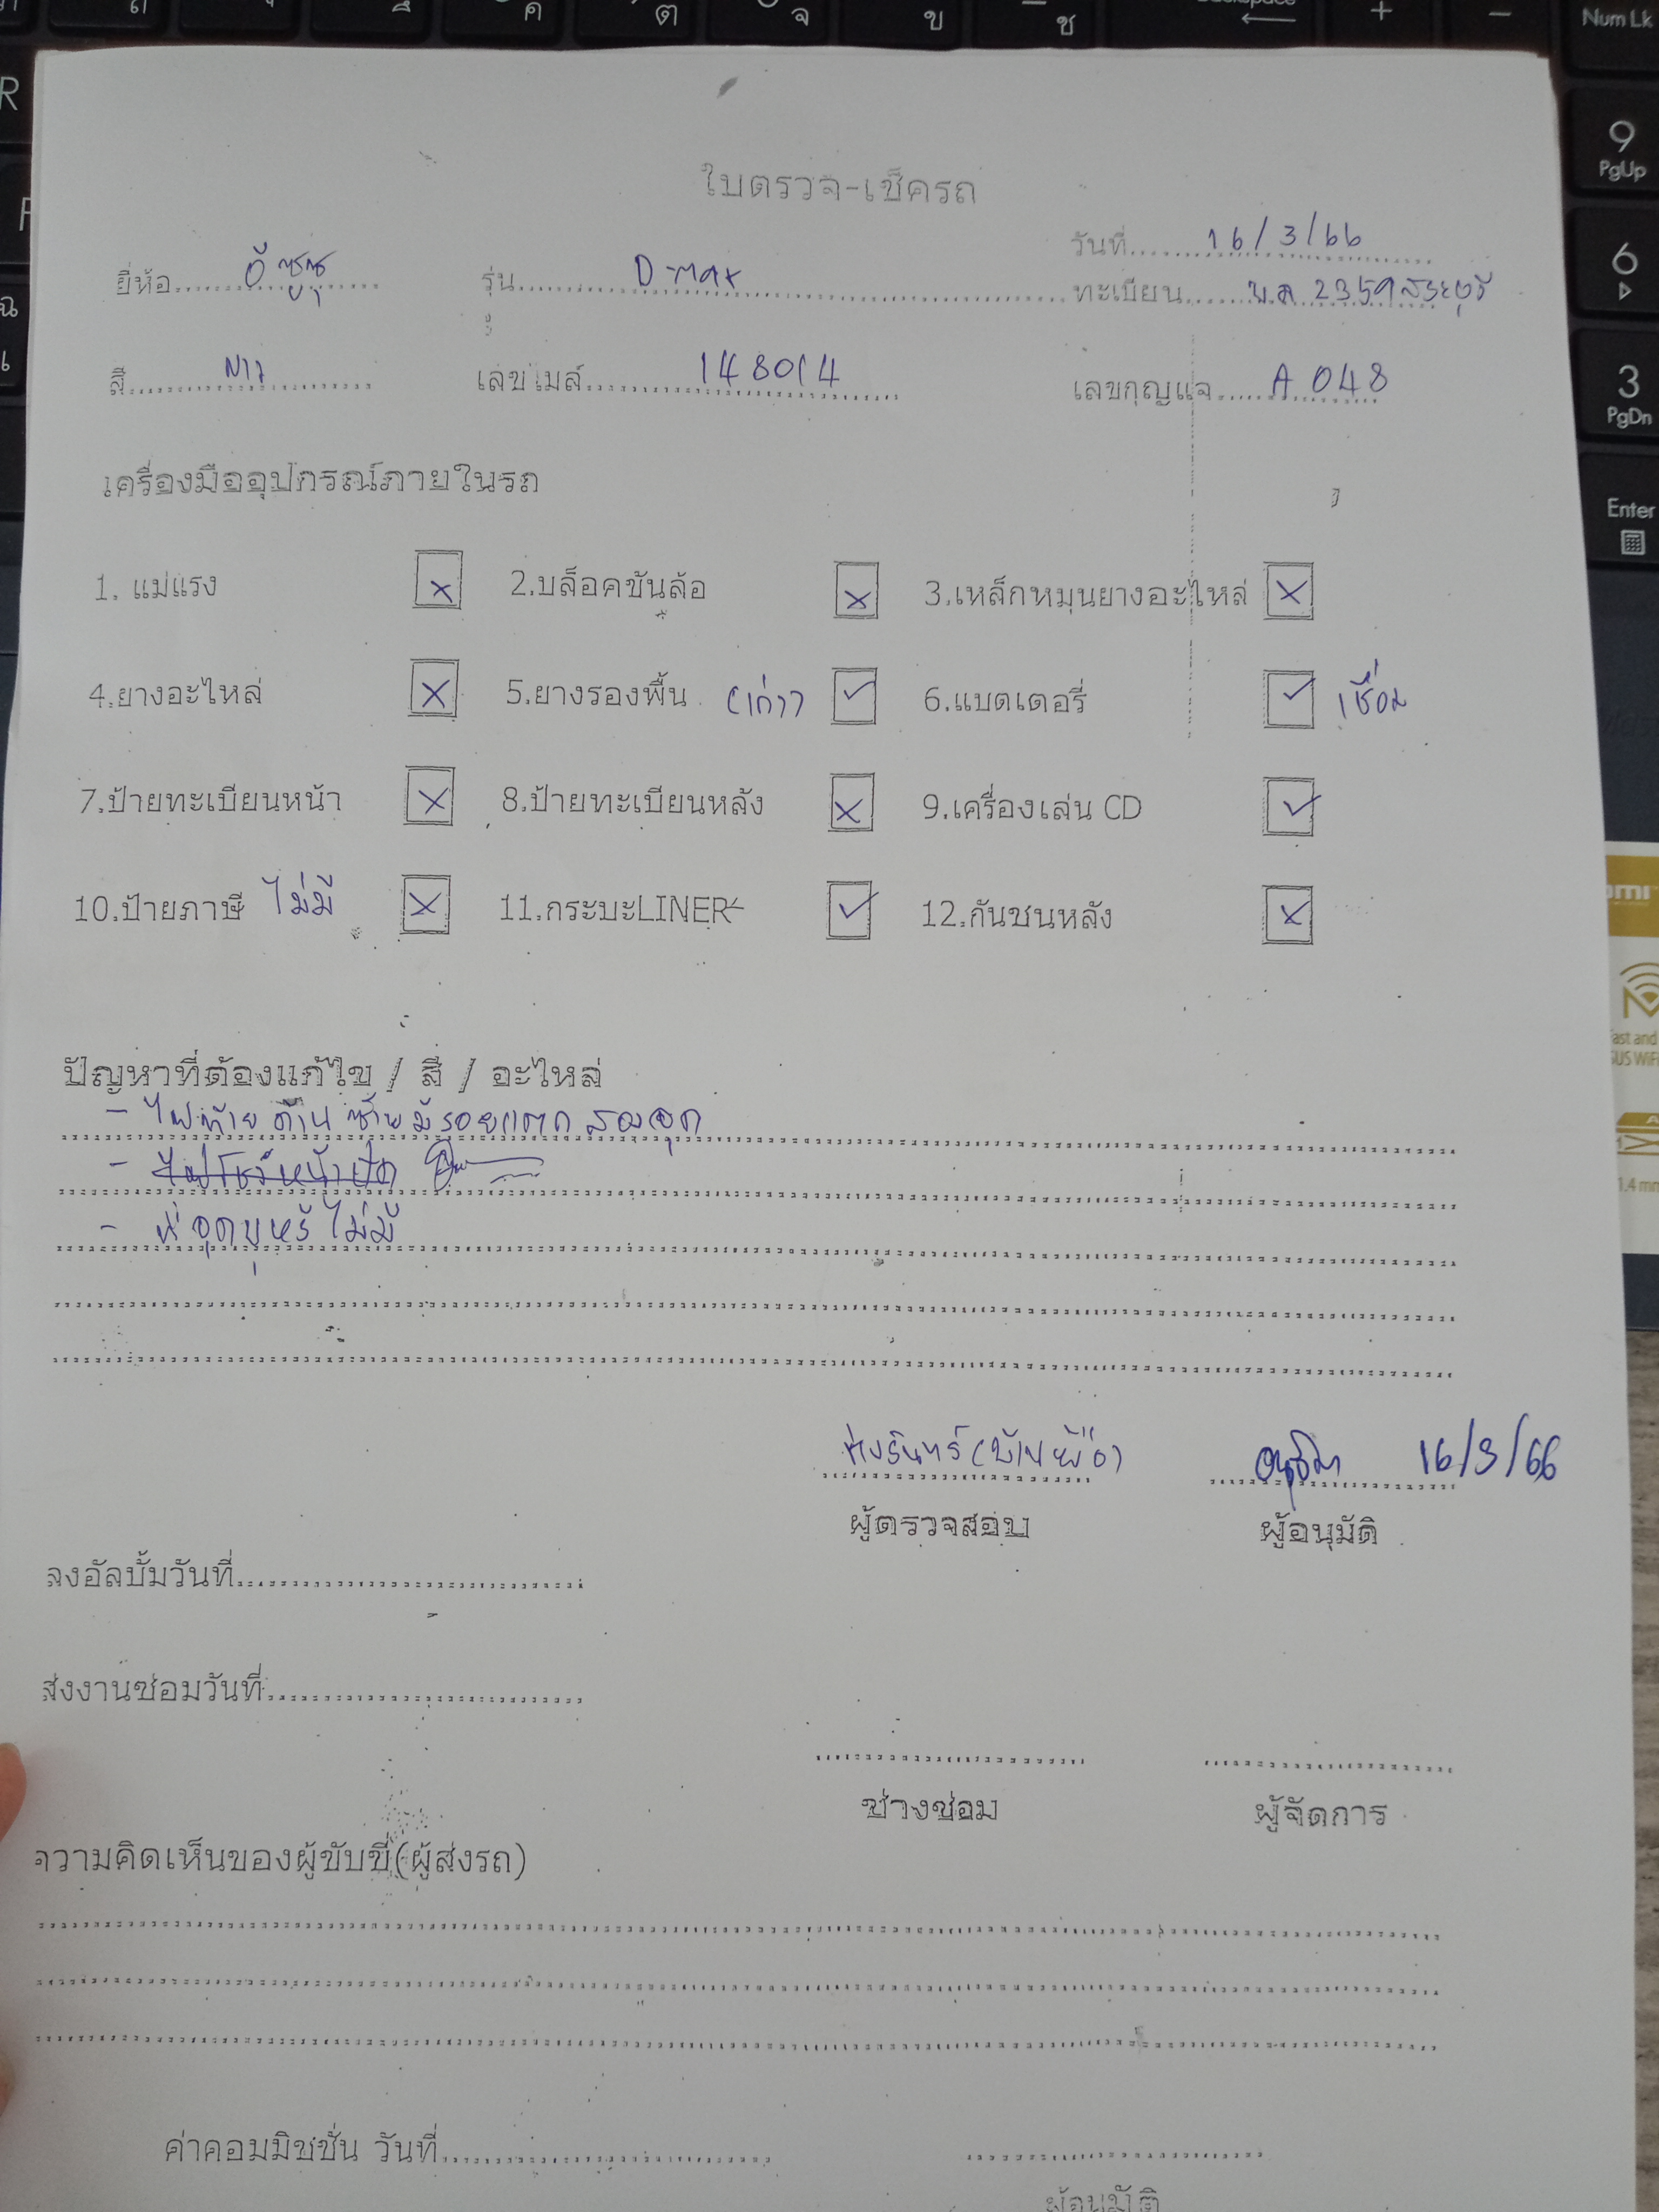 ใบตรวจ-เช็ครถ
วันที่ 16/3/66
ยี่ห้อ อีซูซุ รุ่น D-max ทะเบียน 2359 สระบุรี
สี เทา เลขไมล์ 148014 เลขกุญแจ A 048
เครื่องมืออุปกรณ์ภายในรถ
1. แม่แรง ☒ 2.บล็อคขันล้อ ☒ 3.เหล็กหมุนยางอะไหล่ ☒
4.ยางอะไหล่ ☒ 5.ยางรองพื้น (เก่า) ☑ 6.แบตเตอรี่ ☑ เชื่อม
7.ป้ายทะเบียนหน้า ☒ 8.ป้ายทะเบียนหลัง ☒ 9.เครื่องเล่น CD ☑
10.ป้ายภาษี ไม่มี ☒ 11.กระบะLINER ☑ 12.กันชนหลัง ☒
ปัญหาที่ต้องแก้ไข / สี / อะไหล่
- ไฟท้ายด้านซ้ายมีรอยแตกสองจุด
- ไฟโชว์หน้าปัด
- ที่จุดบุหรี่ไม่มี
16/3/66
ผู้ตรวจสอบ ผู้อนุมัติ
ลงอัลบั้มวันที่
ส่งงานซ่อมวันที่
ช่างซ่อม ผู้จัดการ
ความคิดเห็นของผู้ขับขี่(ผู้ส่งรถ)
ค่าคอมมิชชั่น วันที่
ผู้อนุมัติ
Num Lk
9
PgUp
6
3
PgDn
Enter